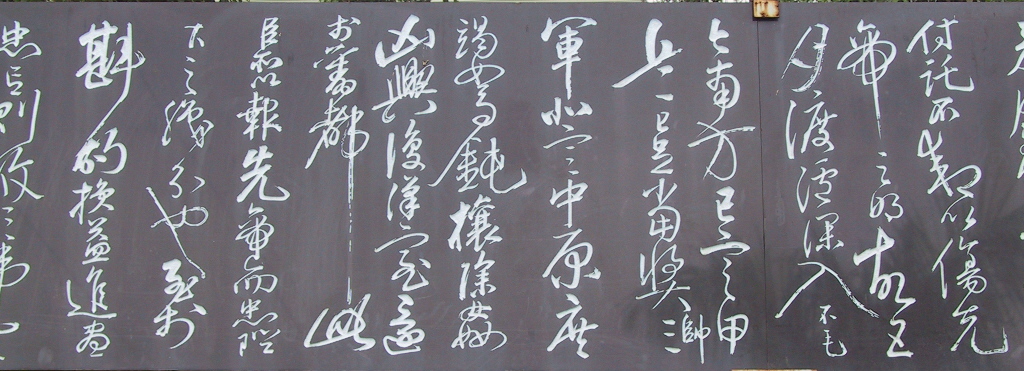 付託不效以傷先
帝之明故五
月渡瀘深入不毛
今南方已定甲
兵已足當獎帥三
軍北定中原庶
竭駑鈍攘除姧
凶興復漢室還
於舊都此
臣所以報先帝而忠陛
下之職分也至於
斟酌損益進盡
忠言則攸之禕